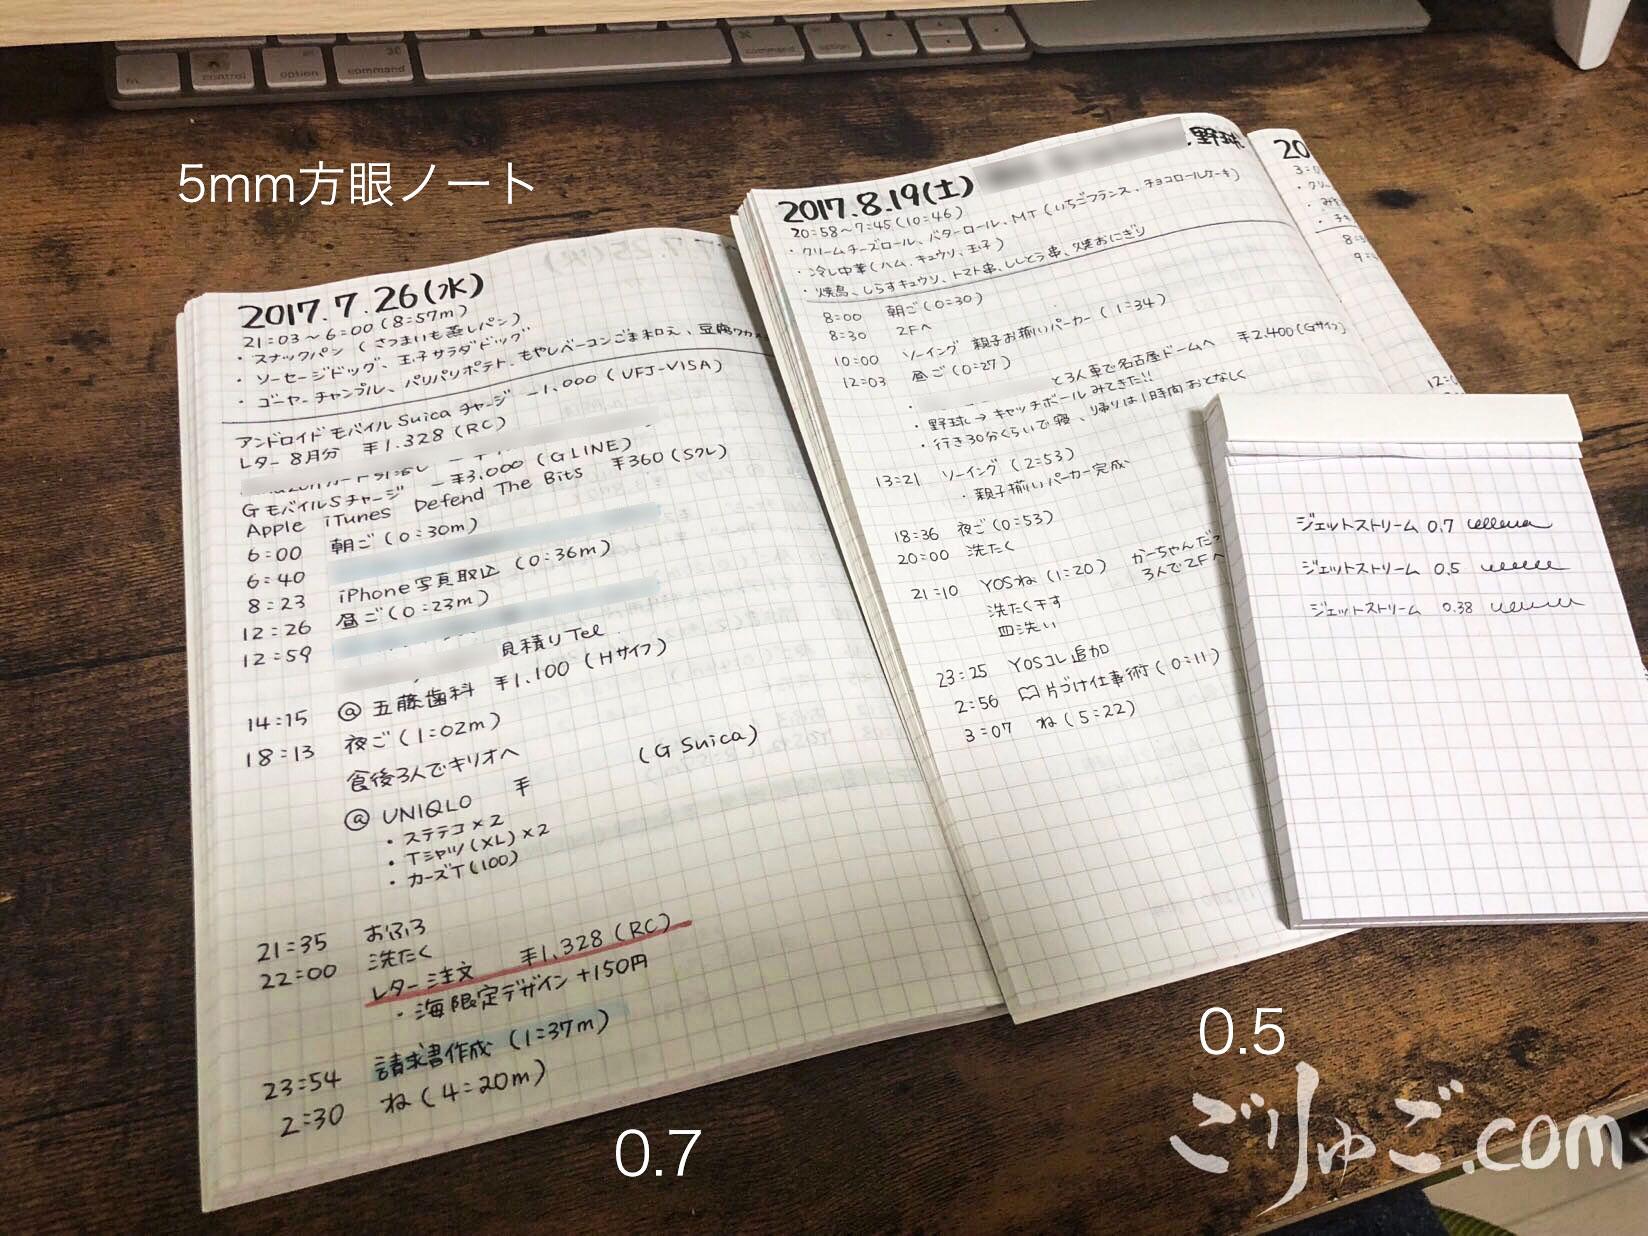 fn
control
option
command
command
option
5mm方眼ノート
2017.7.26(水)
21:03〜6:00(8:57m)
・スナックパン(さつまいも蒸しパン)
・ソーセージドッグ、玉子サラダドッグ
・ゴーヤーチャンプル、パリパリポテト、もやしベーコンごま和え、豆腐ワカメ
アンドロイドモバイルSuicaチャージ -1,000(UFJ-VISA)
レター8月分 ¥1.328(RC)
GモバイルSチャージ -¥3,000(G LINE)
Apple iTunes Defend The Bits ¥360(Sクレ)
6:00 朝ご(0:30m)
6:40
8:23 iPhone写真取込(0:36m)
12:26 昼ご(0:23m)
12:59
見積りTel
14:15 @五藤歯科 ¥1.100(Hサイフ)
18:13 夜ご(1:02m)
食後3人でキリオへ
@UNIQLO ¥ (G Suica)
・ステテコ×2
・Tシャツ(XL)×2
・カーズT(100)
21:35 おふろ
22:00 洗たく
レター注文 ¥1.328(RC)
・海限定デザイン+150円
23:54 請求書作成(1:37m)
2:30 ね(4:20m)
0.7
2017.8.19(土) 、野球
20:58〜7:45(10:46)
・クリームチーズロール、バターロール、MT(いちごフランス、チョコロールケーキ)
・冷し中華(ハム、キュウリ、玉子)
・焼鳥、しらすキュウリ、トマト串、ししとう串、焼おにぎり
8:00 朝ご(0:30)
8:30 2Fへ
10:00 ソーイング 親子お揃いパーカー(1:34)
12:03 昼ご(0:27)
・ と3人車で名古屋ドームへ ¥2.400(Gサイフ)
・野球→キャッチボールみてきた!!
・行き30分くらいで寝、帰りは1時間おとなしく
13:21 ソーイング(2:53)
・親子揃いパーカー完成、
18:36 夜ご(0:53)
20:00 洗たく
21:10 YOSね(1:20) かーちゃんだっ
洗たく干す 3人で2Fへ
皿洗い
23:25 YOSコレ追加
2:56 片づけ仕事術(0:11)
3:07 ね(5:22)
0.5
20
ジェットストリーム 0.7
ジェットストリーム 0.5
ジェットストリーム 0.38
ごりゅご.com